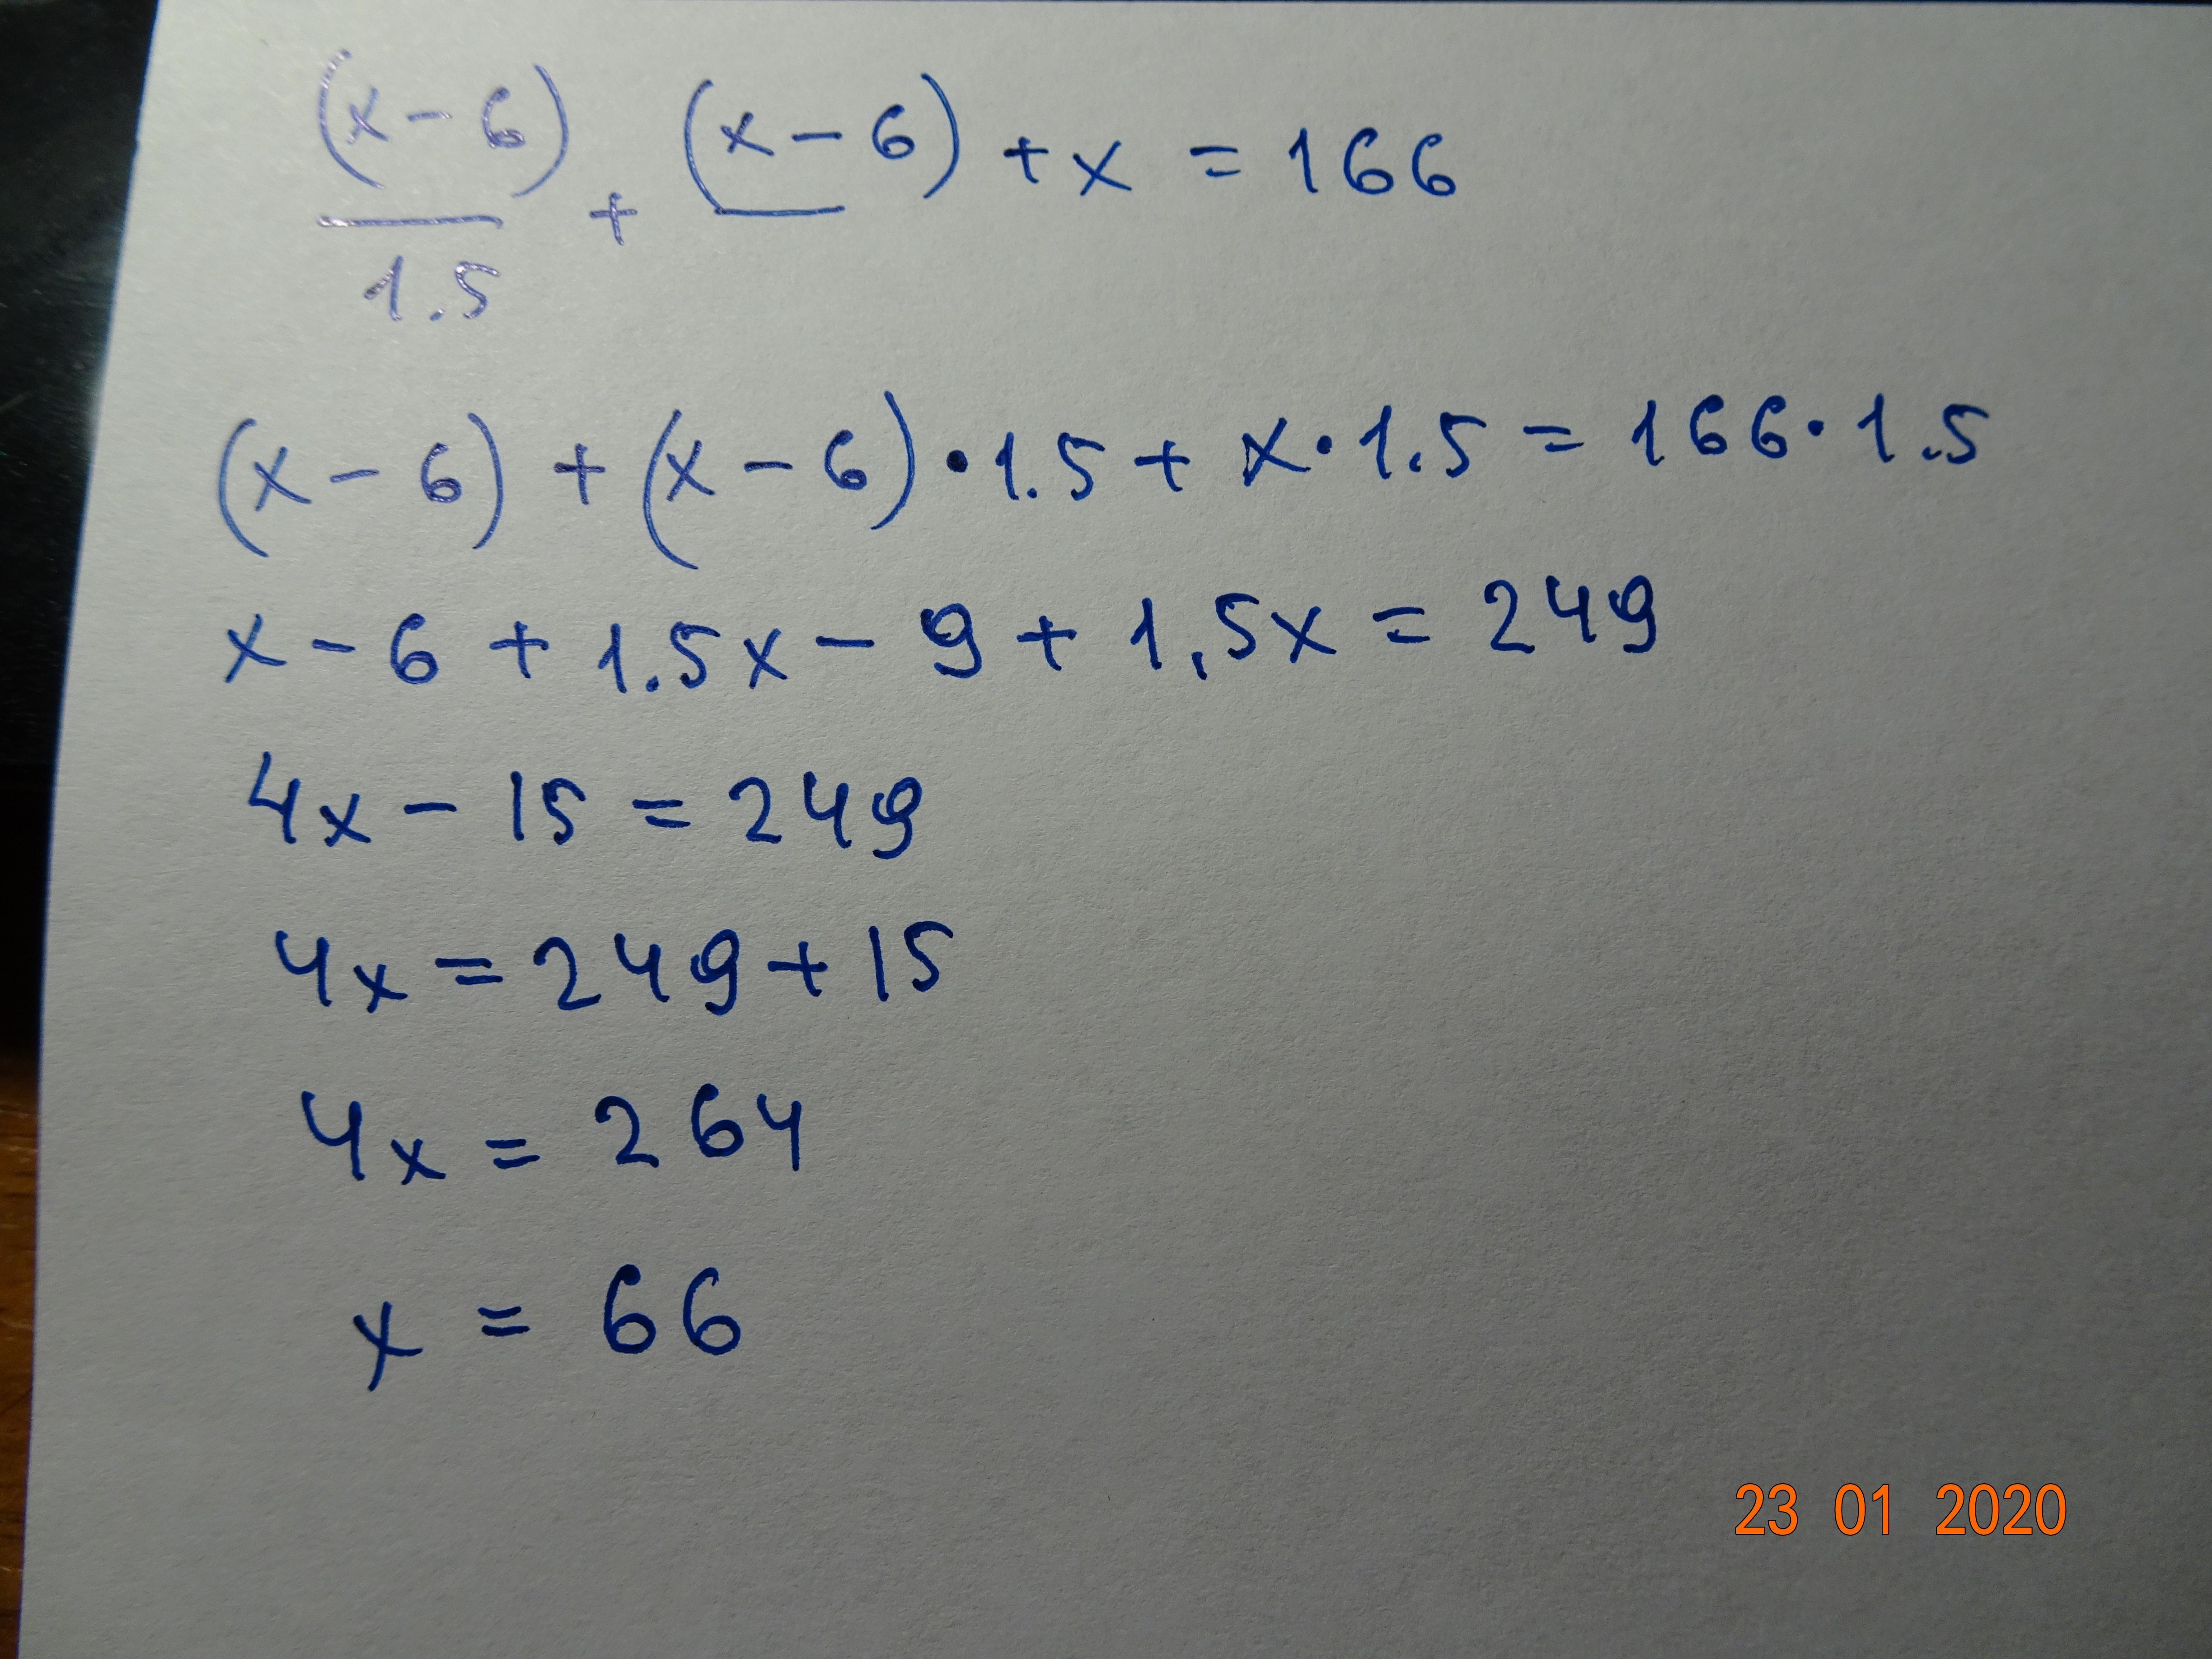 (x-6)/1.5 + (x-6) + x = 166
(x-6) + (x-6)·1.5 + x·1.5 = 166·1.5
x-6 + 1.5x - 9 + 1,5x = 249
4x - 15 = 249
4x = 249 + 15
4x = 264
x = 66
23 01 2020